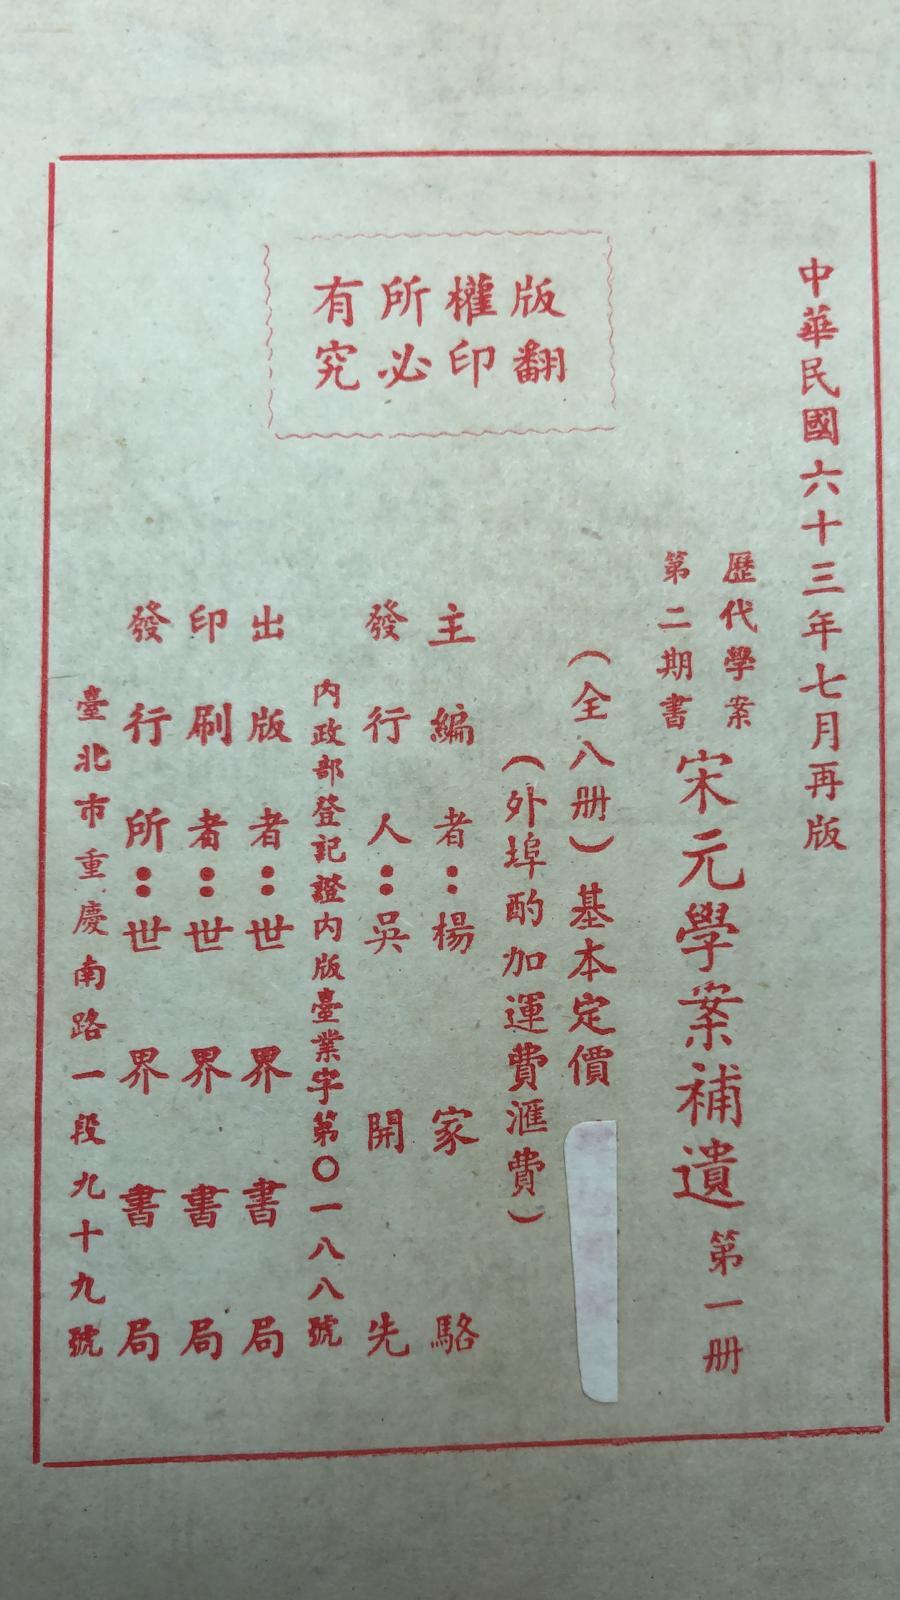 中華民國六十三年七月再版
歷代學案
第二期書
宋元學案補遺 第一册
（全八册）基本定價
（外埠酌加運費滙費）
版權所有
翻印必究
主編者：楊家駱
發行人：吳開先
內政部登記證內版臺業字第〇一八八號
出版者：世界書局
印刷者：世界書局
發行所：世界書局
臺北市重慶南路一段九十九號